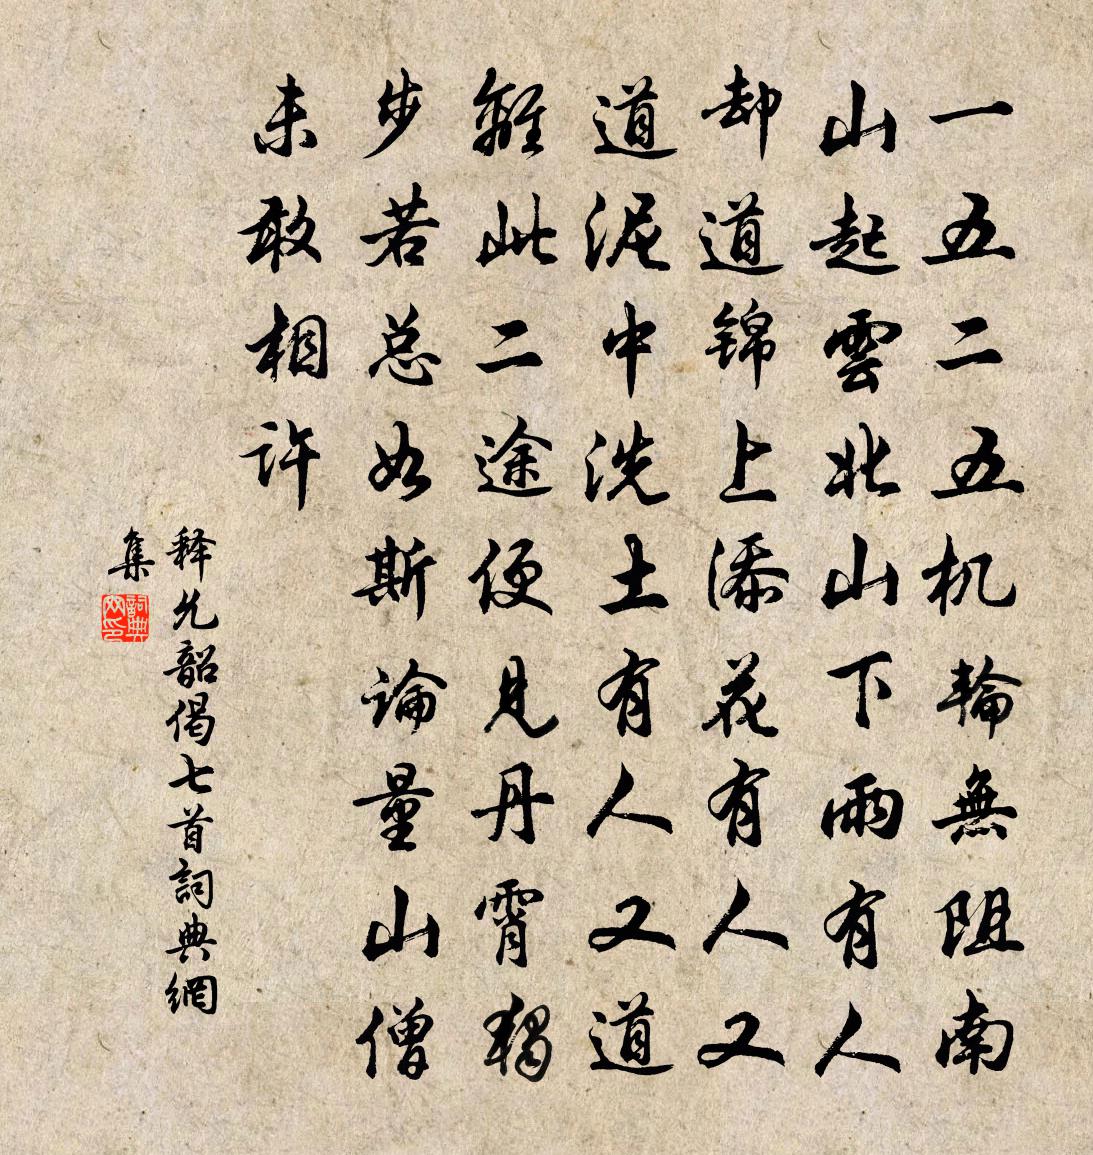 一五二五机輪無阻南
山起雲北山下雨有人
却道锦上添花有人又
道泥中洗土有人又道
離此二途便見丹霄獨
步若总如斯论量山僧
未敢相许
释允韶偈七首詞典網
集
詞典網印